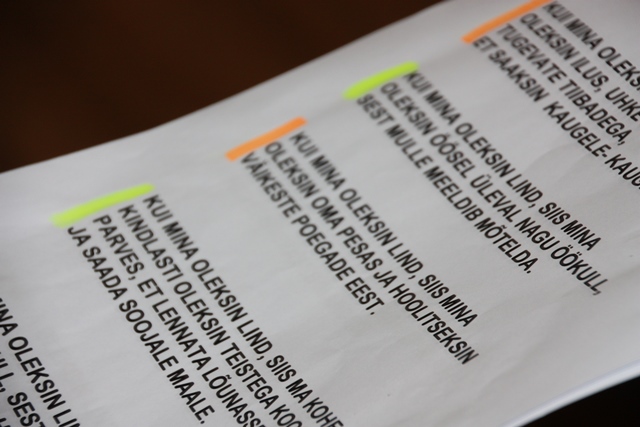 KUI MINA OLEKS
OLEKSIN ILUS, UHK
TUGEVATE TIIBADEGA,
ET SAAKSIN KAUGELE-KAUG
KUI MINA OLEKSIN LIND, SIIS MINA
OLEKSIN ÖÖSEL ÜLEVAL NAGU ÖÖKULL,
SEST MULLE MEELDIB MÕTELDA.
KUI MINA OLEKSIN LIND, SIIS MINA
OLEKSIN OMA PESAS JA HOOLITSEKSIN
VÄIKESTE POEGADE EEST.
KUI MINA OLEKSIN LIND, SIIS MA KOHE
KINDLASTI OLEKSIN TEISTEGA KOO
PARVES, ET LENNATA LÕUNASS
JA SAADA SOOJALE MAALE.
INA OLEKSIN LIN
LL, SEST